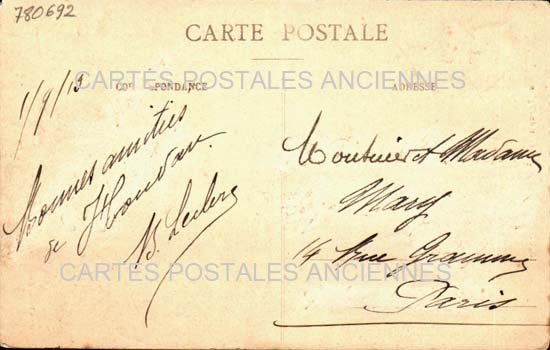 780692
CARTE POSTALE
CARTES POSTALES ANCIENNES
CO PONDANCE
ADRESSE
1/9/13
Bonnes amitiés
de Houdan.
B. Leclerc
Monsieur et Madame
Mary
14 Rue Gramme
Paris
CARTES POSTALES ANCIENNES